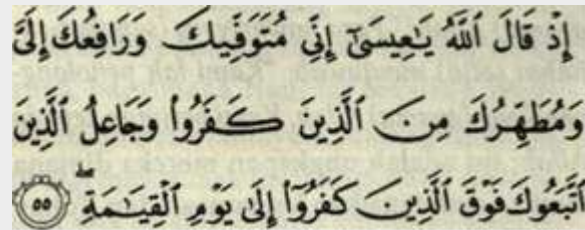 إِذْ قَالَ ٱللَّهُ يَـٰعِيسَىٰٓ إِنِّي مُتَوَفِّيكَ وَرَافِعُكَ إِلَيَّ
وَمُطَهِّرُكَ مِنَ ٱلَّذِينَ كَفَرُوا۟ وَجَاعِلُ ٱلَّذِينَ
ٱتَّبَعُوكَ فَوْقَ ٱلَّذِينَ كَفَرُوٓا۟ إِلَىٰ يَوْمِ ٱلْقِيَـٰمَةِ ۖ ٥٥